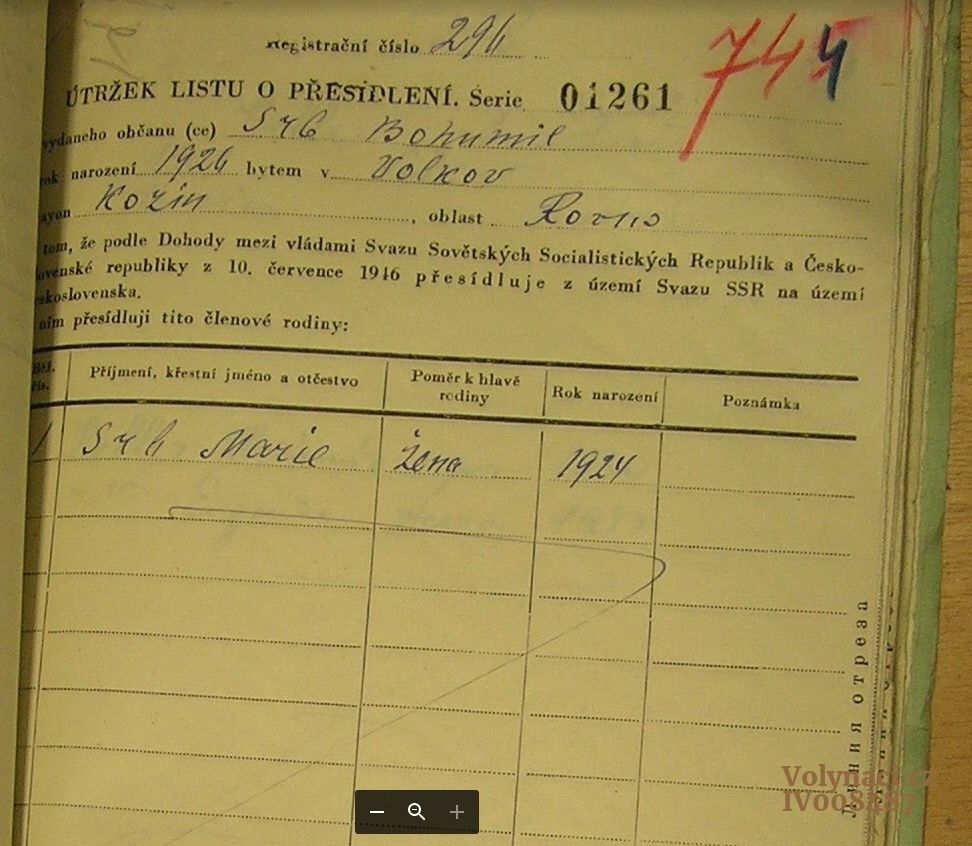 Registrační číslo 296
744
ÚTRŽEK LISTU O PŘESÍDLENÍ. Serie 01261
vydaného občanu (ce) Srb Bohumil
rok narození 1926 bytem v Volkov
rayon Kozin, oblast Rovno
tom, že podle Dohody mezi vládami Svazu Sovětských Socialistických Republik a Česko-
slovenské republiky z 10. července 1946 přesídluje z území Svazu SSR na území
Československa.
ním přesídlují tito členové rodiny:
Běž. čís. Příjmení, křestní jméno a otčestvo Poměr k hlavě rodiny Rok narození Poznámka
1 Srb Marie žena 1924
Линия отреза
Volynaci.cz